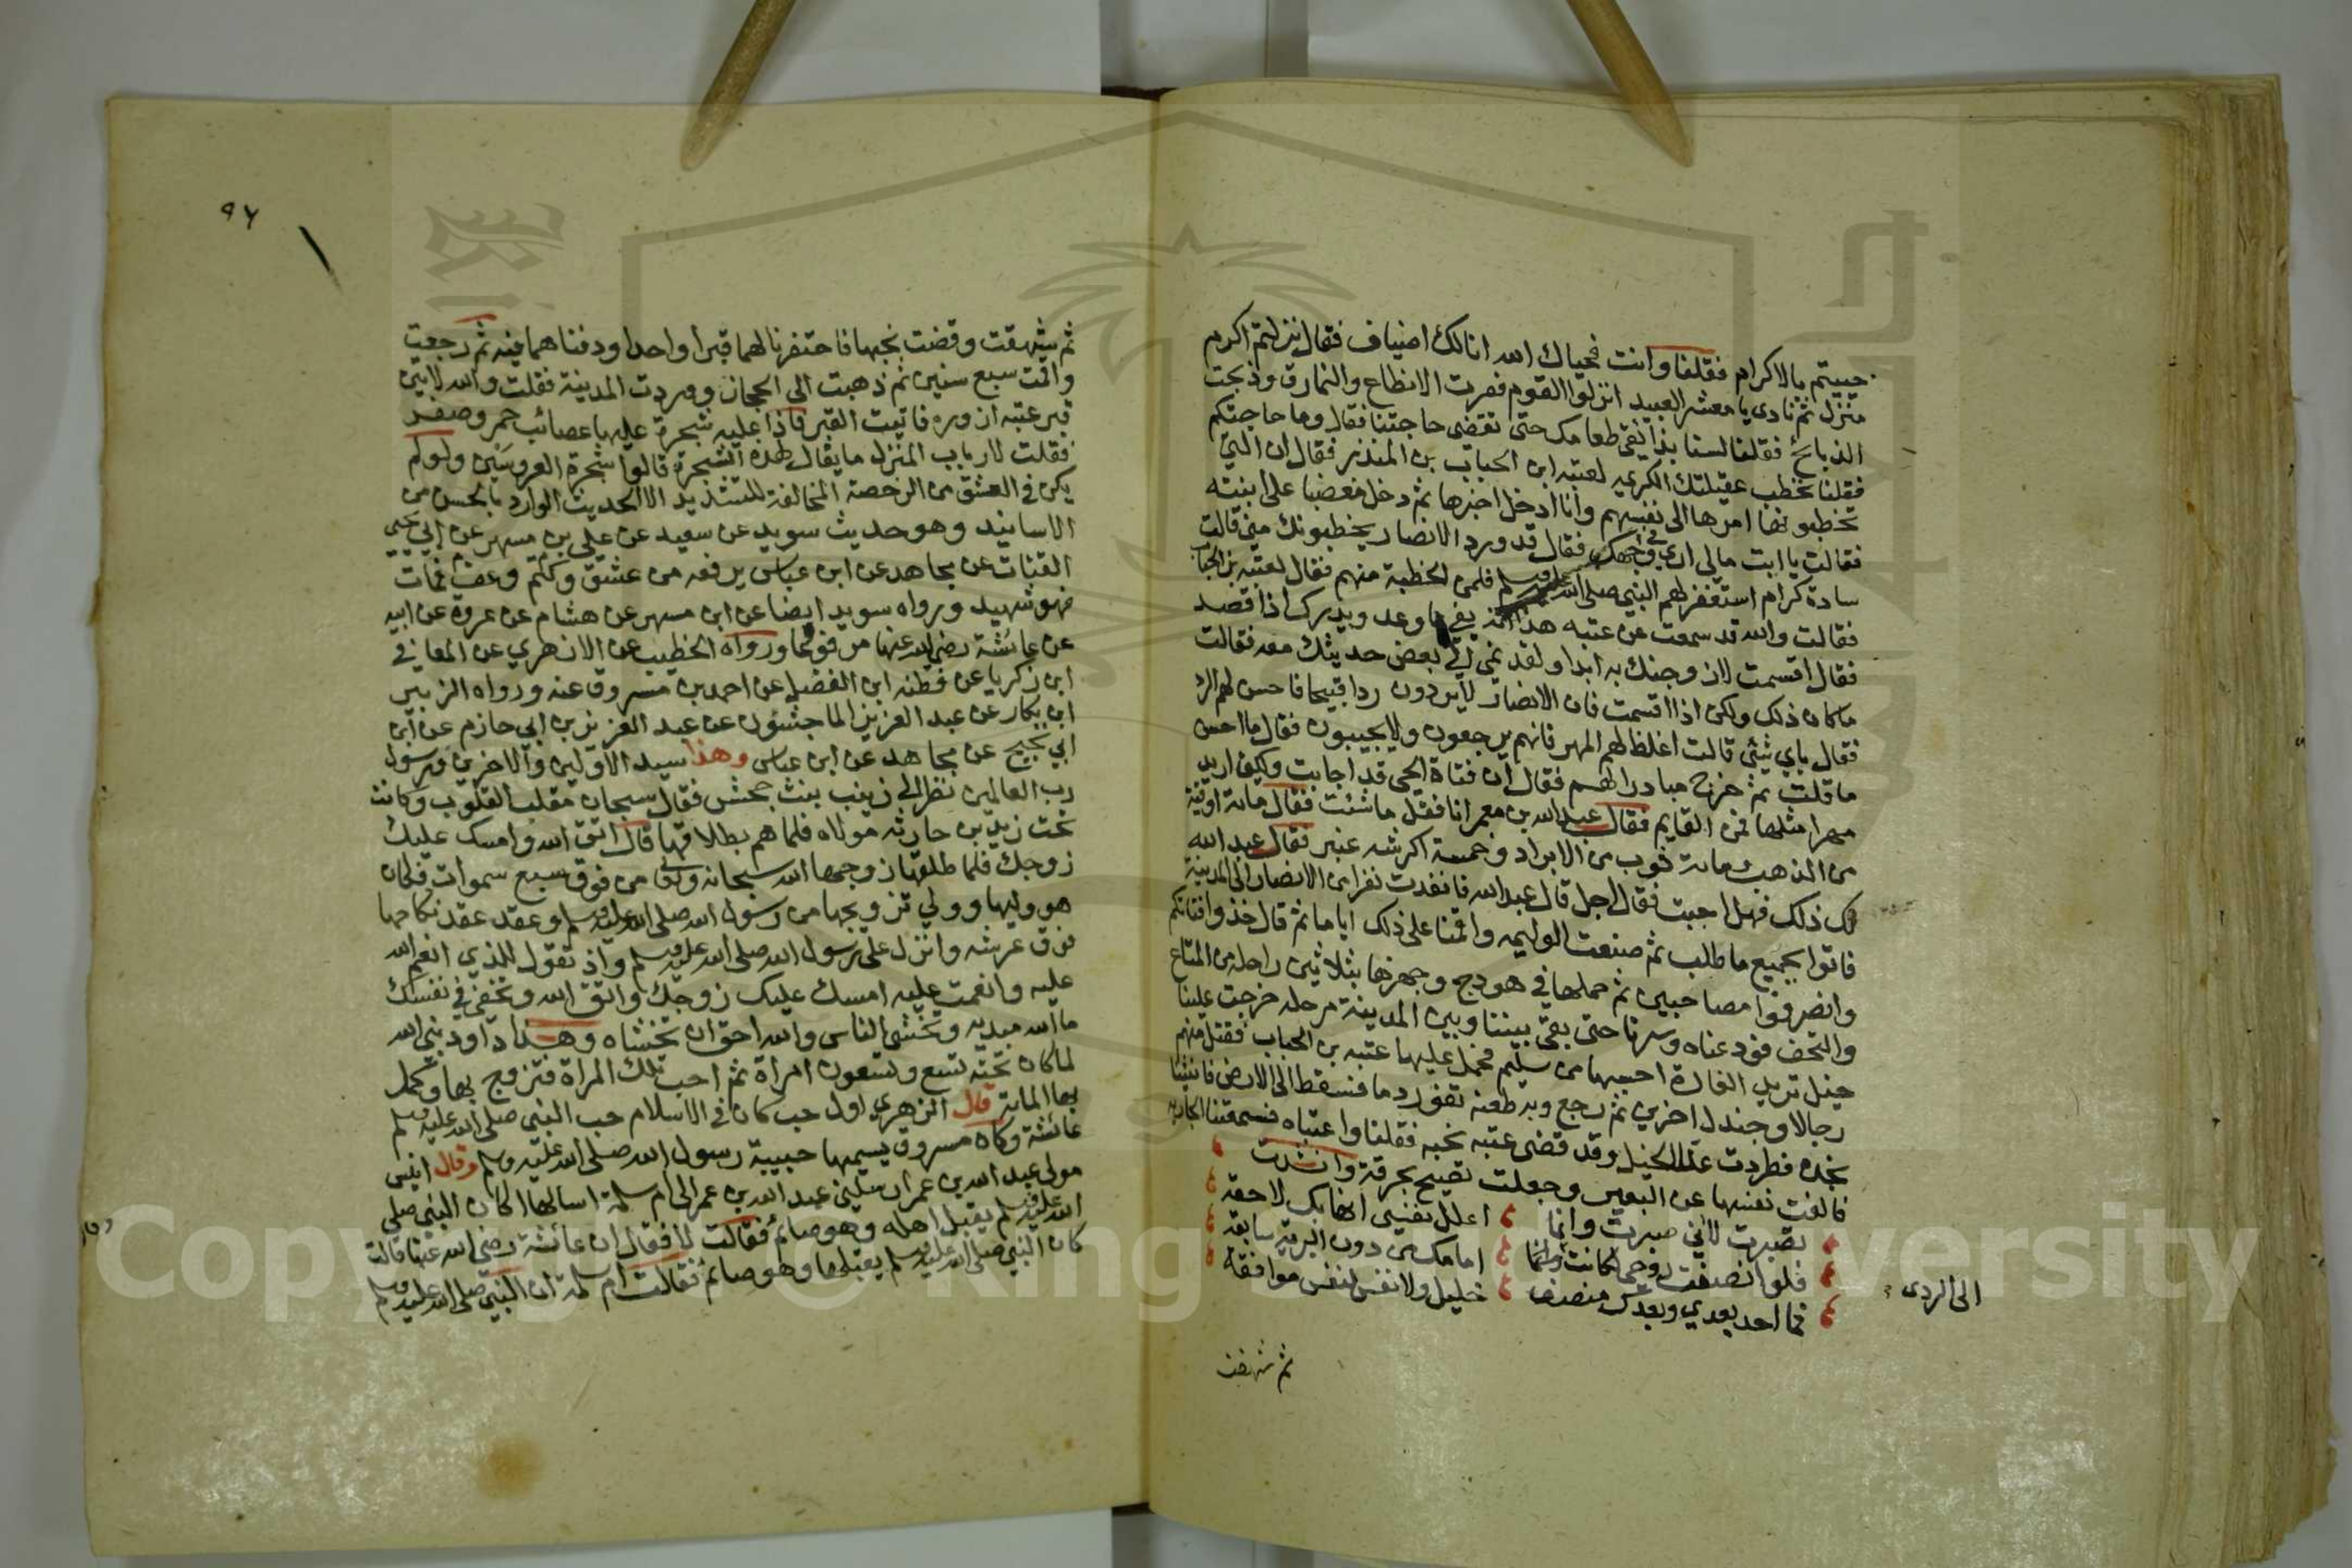 حييتم بالاكرام فقلنا وانت فحياك الله انا لك اضياف فقال نزلتم اكرم
منزل ثم نادى يا معشر العبيد انزلوا القوم ففرت الانطاع والنمارق وذبحت
الذبائح فقلنا لسنا بذائقي طعامك حتى تقضي حاجتنا فقال وما حاجتكم
فقلنا نخطب عقيلتك الكريمه لعتبه ابن الحباب بن المنذر فقال ان التي
تخطبونها امرها الى نفسها وانا ادخل اخبرها ثم دخل مغضبا على ابنته
فقالت يا ابت مالي ارى في وجهك فقال قد ورد الانصار يخطبونك مني قالت
سادة كرام استغفر لهم النبي صلى الله عليه وسلم فلمن الخطبة منهم فقال لعتبه بن الحباب
فقالت والله قد سمعت عن عتبه هذا انه يفي بما وعد ويدرك اذا قصد
فقال اقسمت لازوجنك به ابدا ولقد نمى الي بعض حديثك معه فقالت
ما كان ذلك ولكن اذا اقسمت فان الانصار لا يردون ردا قبيحا فاحسن لهم الرد
فقال باي شئ قالت اغلظ لهم المهر فانهم يرجعون ولا يجيبون فقال ما احسن
ما قلت ثم خرج مبادرا لهم فقال ان فتاة الحي قد اجابت ولكن اريد
مهرا مثلها فمن القايم فقال عبد الله بن معمر انا فقل ما شئت فقال مائة اوقية
من الذهب ومائة ثوب من الابراد وخمسة اكرشه عنبر فقال عبد الله
لك ذلك فهل اجبت فقال اجل قال عبد الله فانفدت نفرا من الانصار الى المدينة
فاتوا بجميع ما طلب ثم صنعت الوليمه واقمنا على ذلك اياما ثم قال خذوا فتاتكم
وانصرفوا مصاحبين ثم حملها في هودج وجهزها بثلاثين راحله من المتاع
والتحف فودعناه وسرنا حتى بقي بيننا وبين المدينة مرحله خرجت علينا
خيل تريد الغارة احسبها من سليم فحمل عليها عتبه بن الحباب فقتل منهم
رجالا وجندل اخرين ثم رجع وبه طعنه تفور دما فسقط الى الارض فاتينا
بخده فطردت عنا الخيل وقد قضى عتبه نحبه فقلنا واعتباه فسمعتنا الجاريه
فالقت نفسها عن البعير وجعلت تصيح بحرقة وانشدت
تصبرت لا اني صبرت وانما اعلل نفسي انها بك لاحقه
فلو انصفت روحي لكانت الى الردى امامك من دون البريه سابقه
فما احد بعدي وبعدك منصف خليل ولا نفس لنفس موافقة
الى الردى
ثم شهقت
٩٦
ثم شهقت وقضت نحبها فاحتفرنا لهما قبرا واحدا ودفناهما فيه ثم رجعت
واقمت سبع سنين ثم ذهبت الى الحجاز ووردت المدينة فقلت والله لاتين
قبر عتبه ازوره فاتيت القبر فاذا عليه شجرة عليها عصائب حمر وصفر
فقلت لارباب المنزل ما يقال لهذه الشجرة قالوا شجرة العروسين ولو لم
يكن في العشق من الرخصة المخالفة للتشديد الا الحديث الوارد بالحسن من
الاسانيد وهو حديث سويد عن سعيد عن علي بن مسهر عن ابي يحيى
القتات عن مجاهد عن ابن عباس يرفعه من عشق وكتم وعف فمات
فهو شهيد ورواه سويد ايضا عن ابن مسهر عن هشام عن عروة عن ابيه
عن عائشة رضي الله عنها مرفوعا ورواه الخطيب عن الازهري عن المعافي
ابن زكريا عن قطنه ابن الفضل عن احمد بن مسروق عنه ورواه الزبير
ابن بكار عن عبد العزيز الماجشون عن عبد العزيز بن ابي حازم عن ابن
ابي نجيح عن مجاهد عن ابن عباس وهذا سيد الاولين والاخرين ورسول
رب العالمين نظر الى زينب بنت جحش فقال سبحان مقلب القلوب وكانت
تحت زيد بن حارثه مولاه فلما هم بطلاقها قال اتق الله وامسك عليك
زوجك فلما طلقها زوجها الله سبحانه وتعالى من فوق سبع سموات فكان
هو وليها وولي تزويجها من رسول الله صلى الله عليه وسلم وعقد عقد نكاحها
فوق عرشه وانزل على رسول الله صلى الله عليه وسلم واذ تقول للذي انعم الله
عليه وانعمت عليه امسك عليك زوجك واتق الله وتخفي في نفسك
ما الله مبديه وتخشى الناس والله احق ان تخشاه وهذا داود نبي الله
لما كان تحته تسع وتسعون امراة ثم احب تلك المراة فتزوج بها وكمل
بها المائة قال الزهري اول حب كان في الاسلام حب النبي صلى الله عليه وسلم
عائشة وكان مسروق يسميها حبيبة رسول الله صلى الله عليه وسلم وقال ابو قيس
مولى عبد الله بن عمر ارسلني عبد الله بن عمر الى ام سلمة اسالها اكان النبي صلى
الله عليه وسلم يقبل اهله وهو صائم فقالت لا فقال ان عائشة رضي الله عنها قالت
كان النبي صلى الله عليه وسلم يقبلها وهو صائم فقالت ام سلمة ان النبي صلى الله عليه وسلم
Copyright © King Saud University